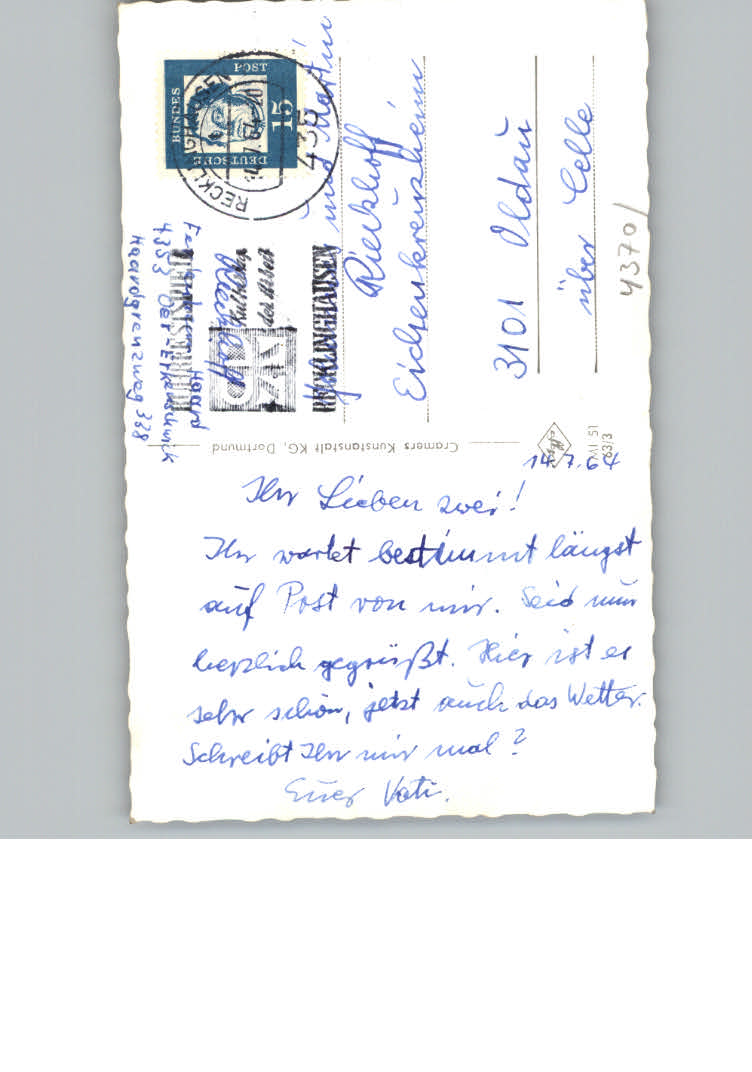 14.7.64
Ihr Lieben zwei!
Ihr wartet bestimmt längst
auf Post von mir. Seid nun
herzlich gegrüßt. Hier ist es
sehr schön, jetzt auch das Wetter.
Schreibt Ihr mir mal?
Euer Vati.
Cramers Kunstanstalt KG, Dortmund
MI 51
63/3
und Martin
Rieckhoff
Eichenkreuzheim
3101 Oldau
über Celle
4370/
DEUTSCHE
BUNDES
POST
15
RECKLINGHAUSEN
435
RUHRFESTSPIELE
Kulturtage
der Arbeit
RECKLINGHAUSEN
Rieckhoff
Haard
4353 Oer-Erkenschwick
Haardgrenzweg 338